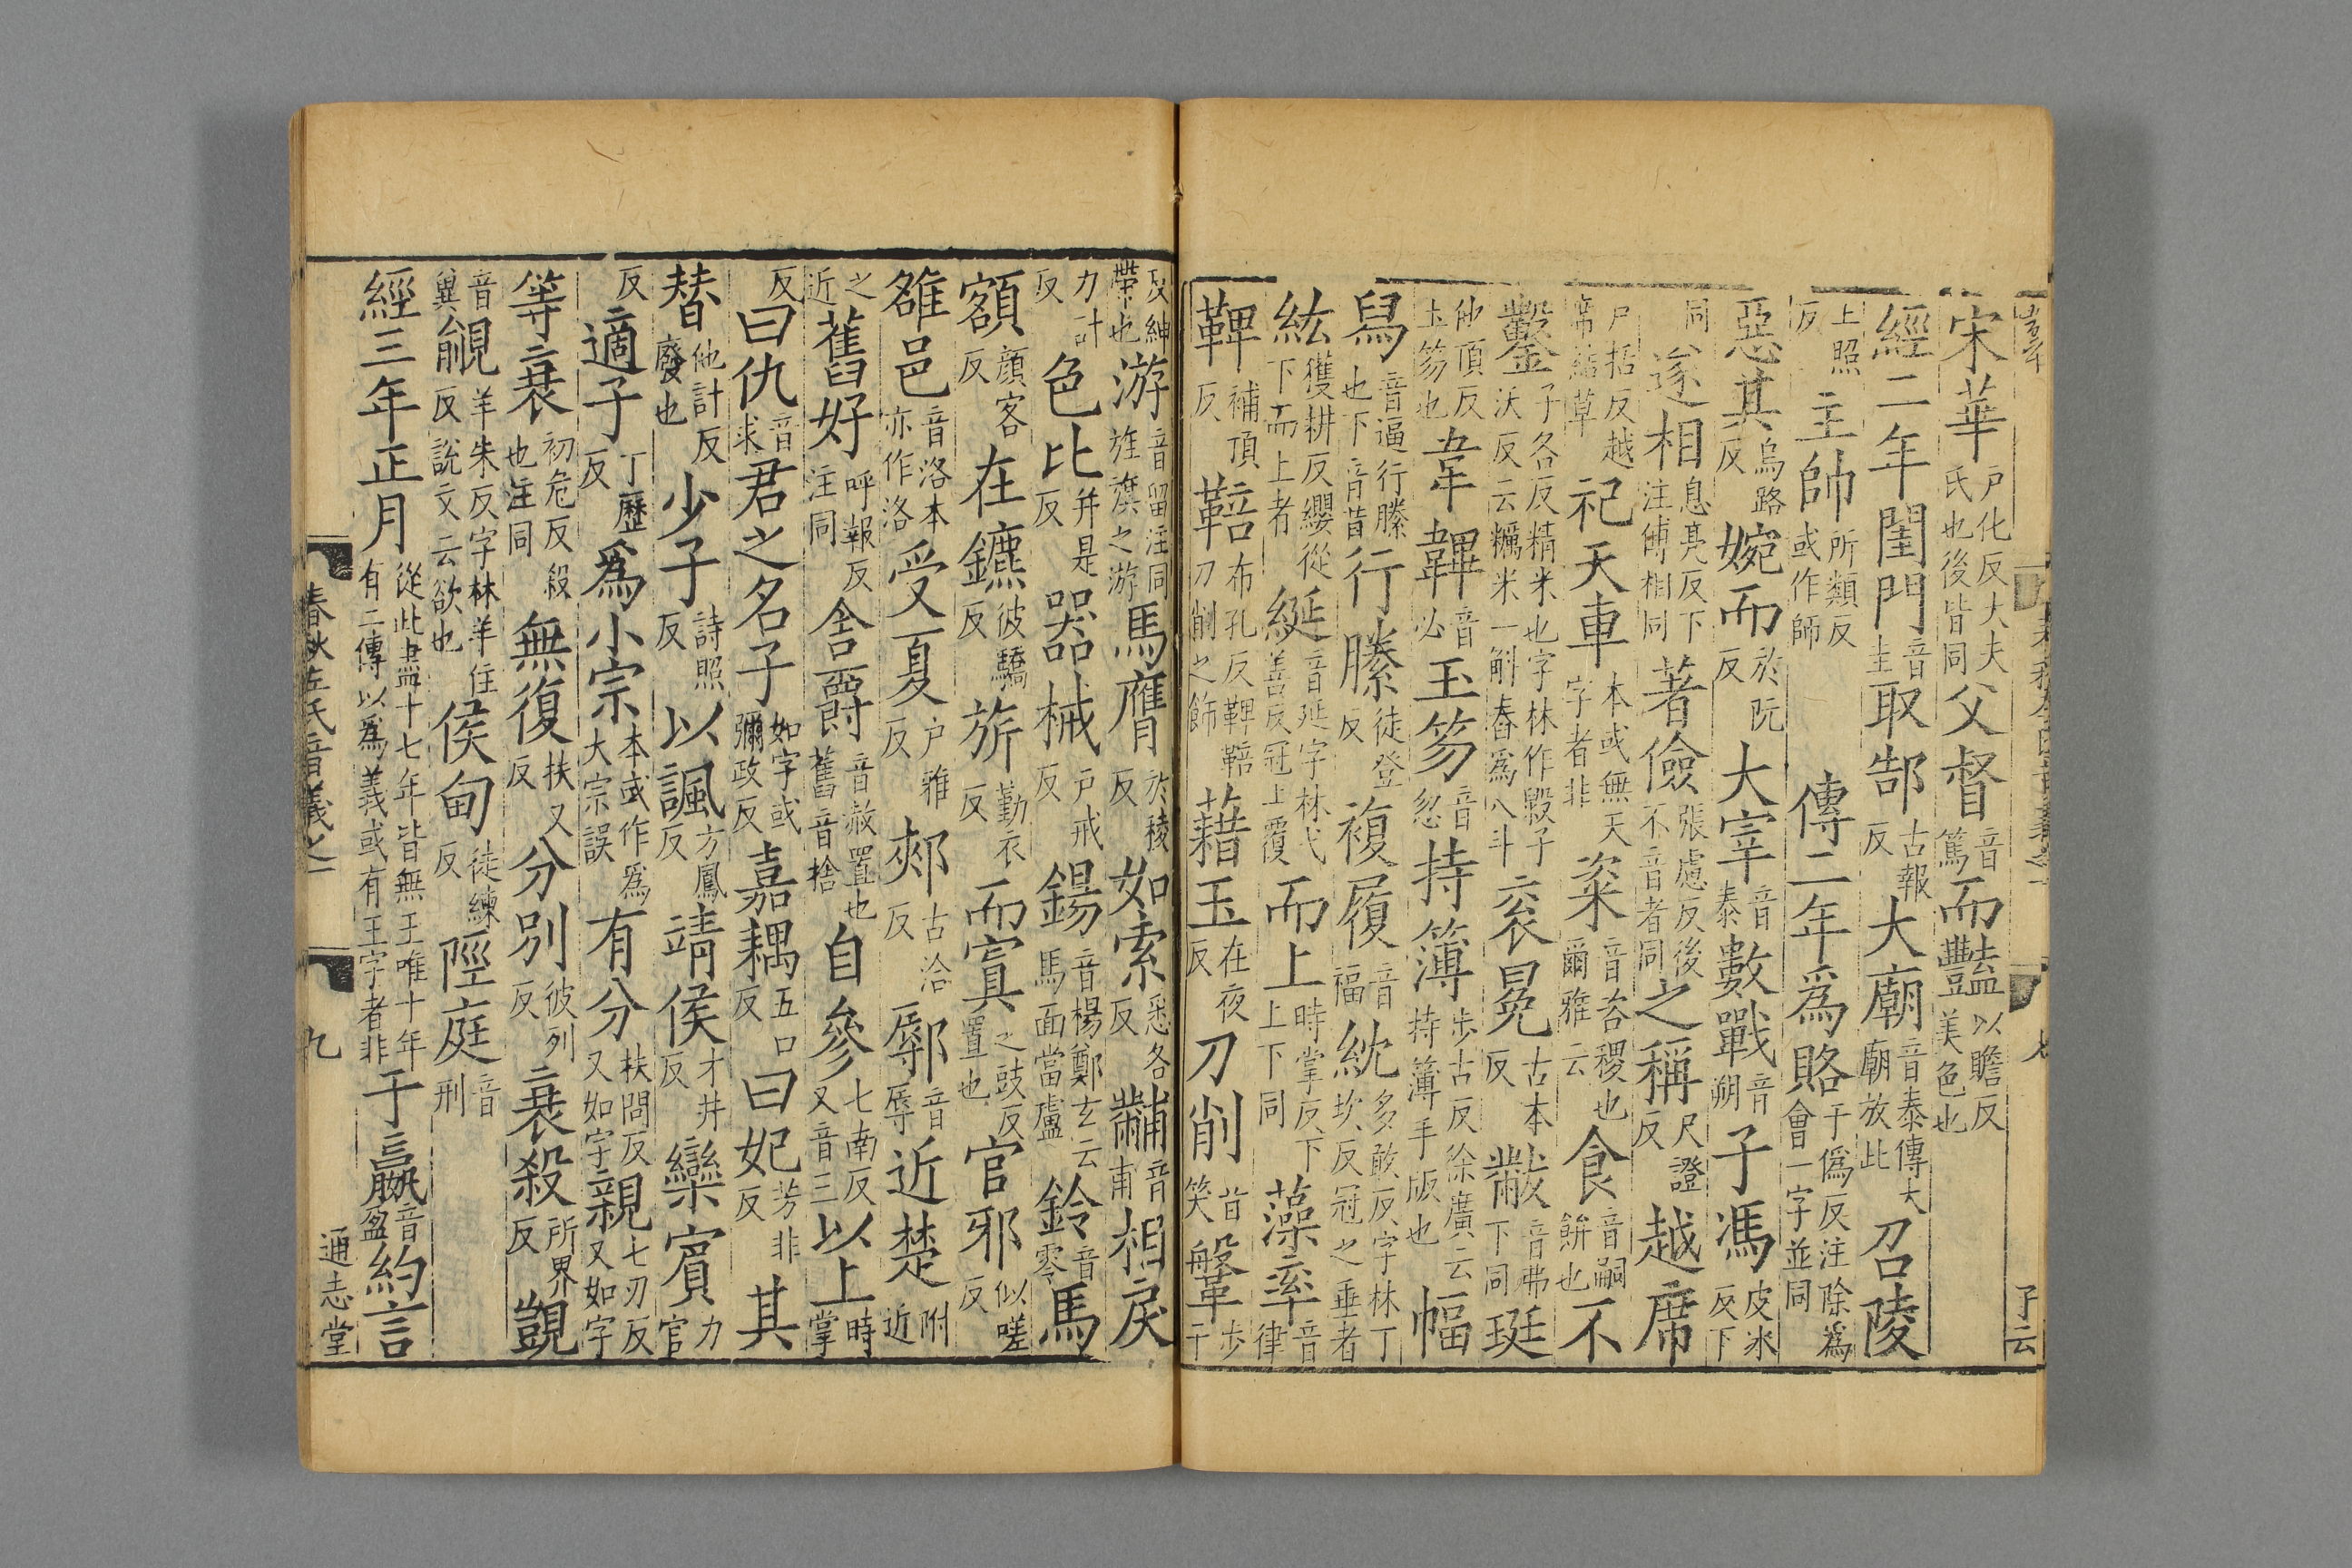 宋華戶化反大夫氏也後皆同父督音篤而豔以贍反美色也
經二年閨門音圭取郜古報反大廟音泰傳大廟放此召陵
上照反主帥所類反或作師傳二年爲賂于僞反注除爲會一字並同
惡其烏路反婉而於阮反大宰音泰數戰音朔子馮皮冰反下
同遂相息亮反下注傅相同著儉張慮反後不音者同之稱尺證反越席
戶括反越席結草祀天車本或無天字者非粢音咨稷也爾雅云食音嗣餅也不
鑿子各反精米也字林作毇子沃反云糲米一斛舂爲八斗衮冕古本反黻音弗下同珽
他頂反玉笏也韋韠音必玉笏音忽持簿步古反徐廣云持簿手版也幅
舃音逼行縢也下音昔行縢徒登反複履音福紞多敢反字林丁坎反冠之垂者
紘獲耕反纓從下而上者綖音延字林弋善反冠上覆而上時掌反下上下同藻率音律
鞞補頂反鞛布孔反鞞鞛刀削之飾藉玉在夜反刀削音笑鞶步干
反紳帶也游音留注同旌旗之游馬膺於稜反如索悉各反黼音甫相戾
力計反色比并是反器械戶戒反鍚音楊鄭玄云馬面當盧鈴音零馬
額顏客反在鑣彼驕反旂勤衣反而寘之豉反置也官邪似嗟反
雒邑音洛本亦作洛受夏戶雅反郟古洽反鄏音辱近楚附近
之近舊好呼報反注同舍爵音赦置也舊音捨自參七南反又音三以上時掌
反曰仇音求君之名子如字或彌政反嘉耦五口反曰妃芳非反其
替他計反廢也少子詩照反以諷方鳳反靖侯才井反欒賓力官
反適子丁歷反爲小宗本或作爲大宗誤有分扶問反又如字親七刃反又如字
等衰初危反殺也注同無復扶又反分別彼列反衰殺所界反覬
音冀覦羊朱反字林羊住反說文云欲也侯甸徒練反陘庭音刑
經三年正月從此盡十七年皆無王唯十年有二傳以爲義或有王字者非于嬴音盈約言
春秋左氏音義之一
九
通志堂